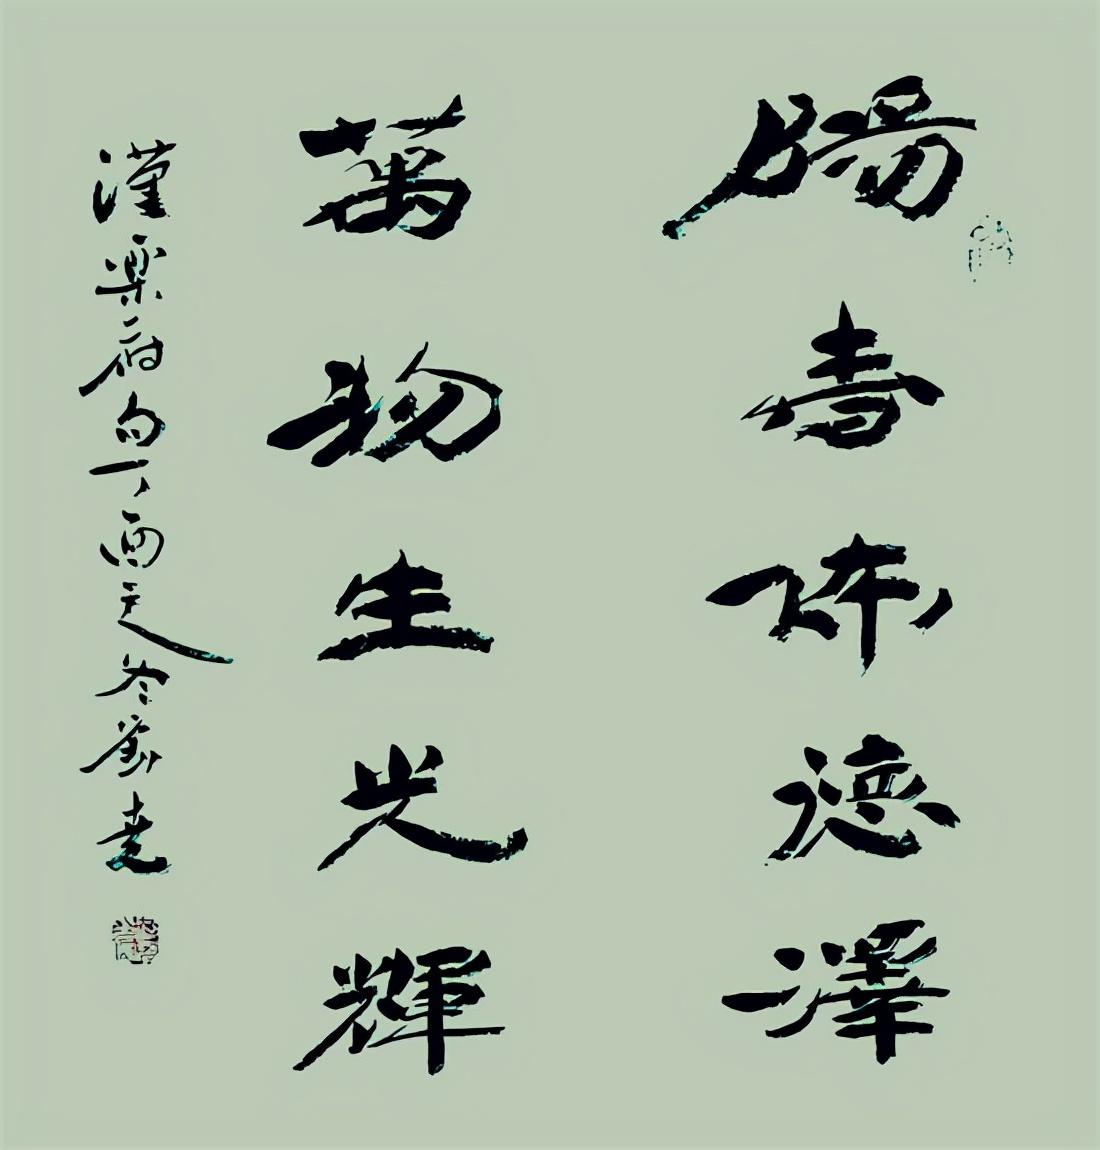 陽春布德澤
萬物生光輝
漢楽府句丁酉之冬